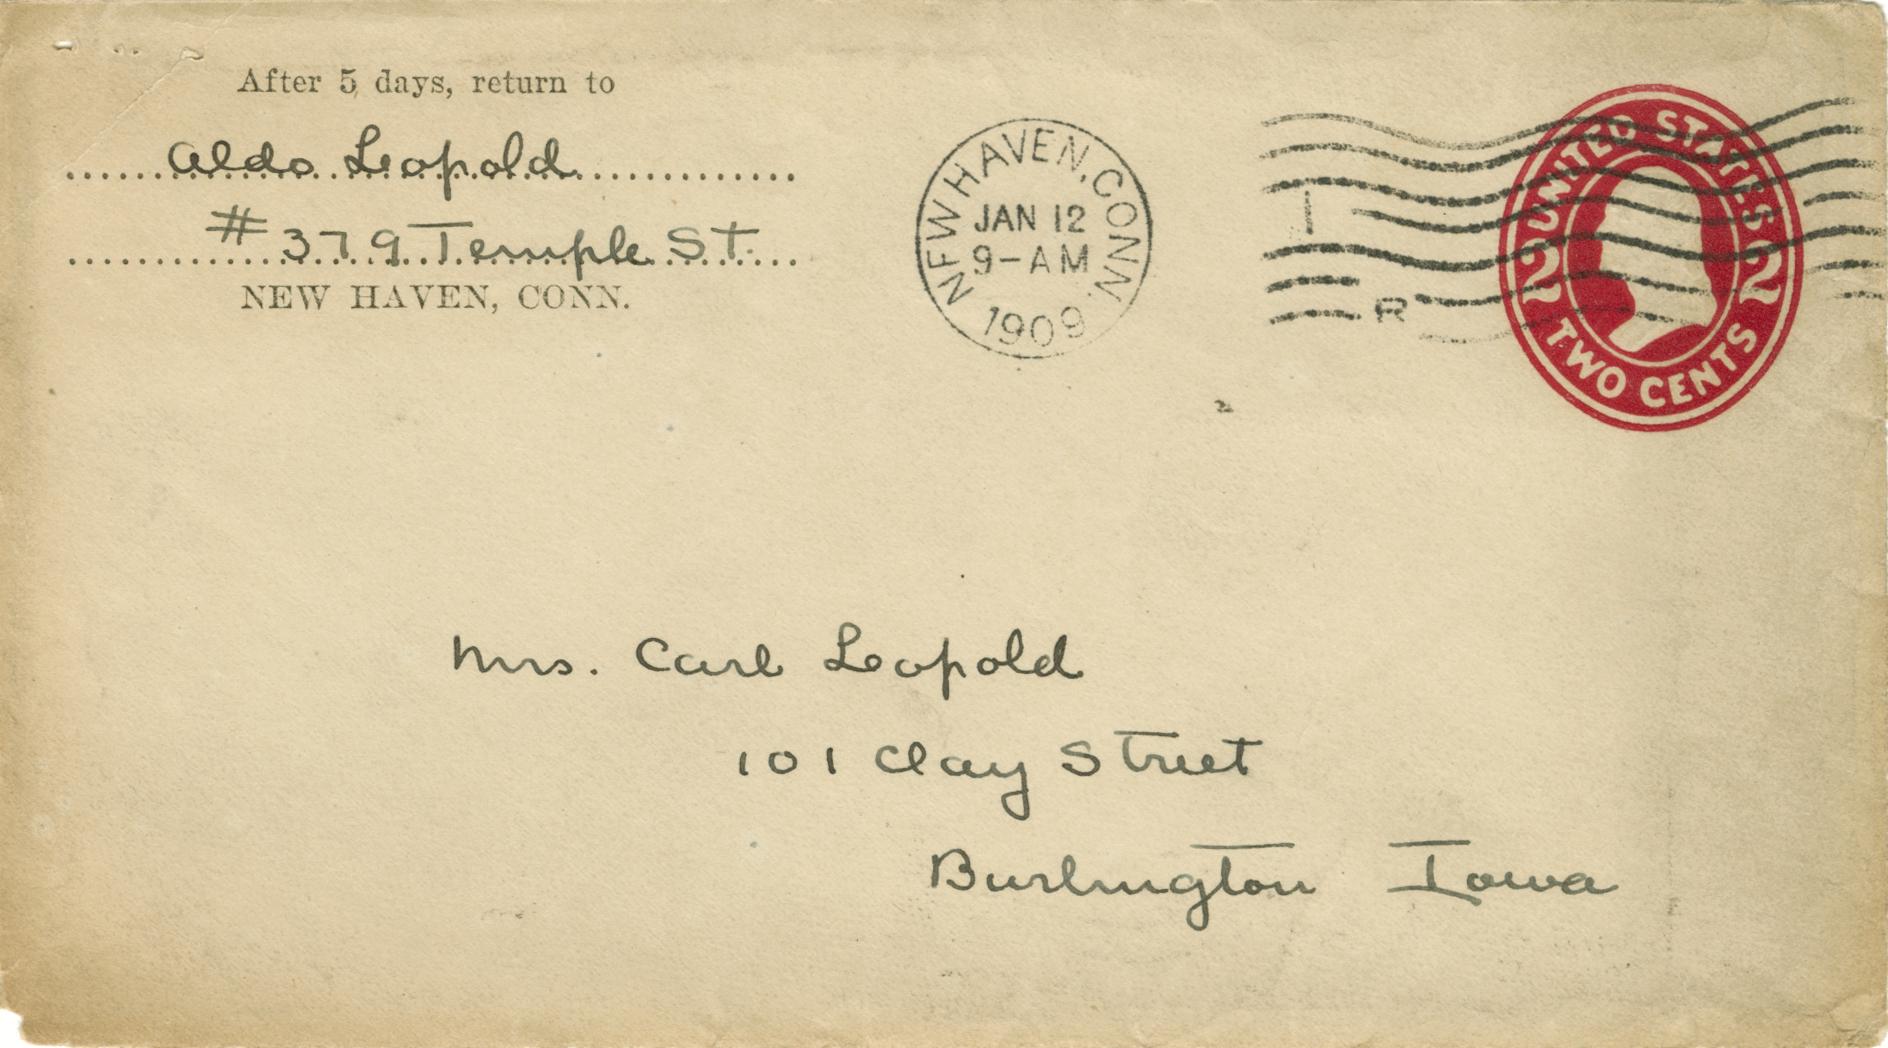 After 5 days, return to
Aldo Leopold
#379 Temple St.
NEW HAVEN, CONN.
NEW HAVEN, CONN.
JAN 12
9-AM
1909
1
R
UNITED STATES
2 2
TWO CENTS
Mrs. Carl Leopold
101 Clay Street
Burlington Iowa